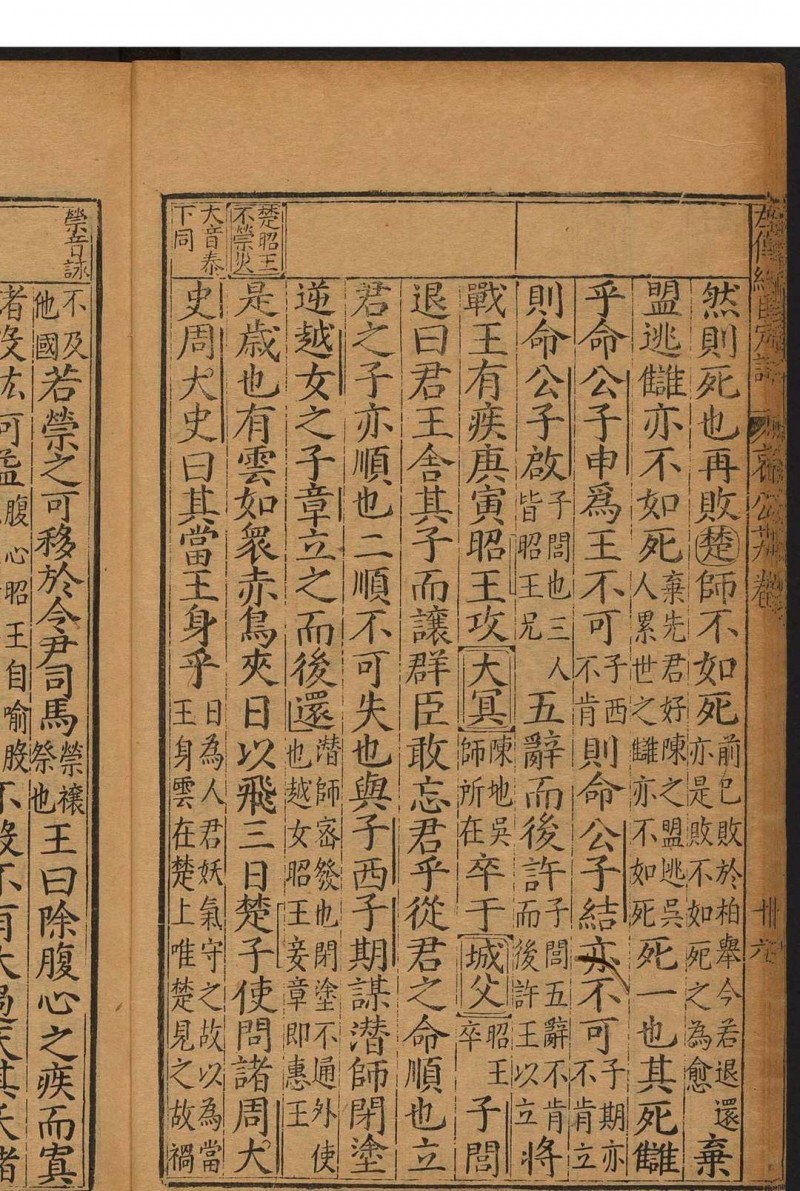 楚昭王
不禜災
大音泰
下同
然則死也再敗楚師不如死前已敗於柏舉今若退還亦是敗不如死之為愈棄
盟逃讎亦不如死棄先君好陳之盟逃吳人累世之讎亦不如死死一也其死讎
乎命公子申爲王不可子西不肯則命公子結亦不可子期亦不肯立
則命公子啟子閭也三人皆昭王兄五辭而後許子閭五辭不肯而後許王以立將
戰王有疾庚寅昭王攻大冥陳地吳師所在卒于城父昭王卒子閭
退曰君王舍其子而讓群臣敢忘君乎從君之命順也立
君之子亦順也二順不可失也與子西子期謀潛師閉塗
逆越女之子章立之而後還潛師密發也閉塗不通外使也越女昭王妾章即惠王
是歳也有雲如衆赤鳥夾日以飛三日楚子使問諸周大
史周大史曰其當王身乎日為人君妖氣守之故以為當王身雲在楚上唯楚見之故禍
禜音詠
不及他國若禜之可移於令尹司馬禜禳祭也王曰除腹心之疾而寘